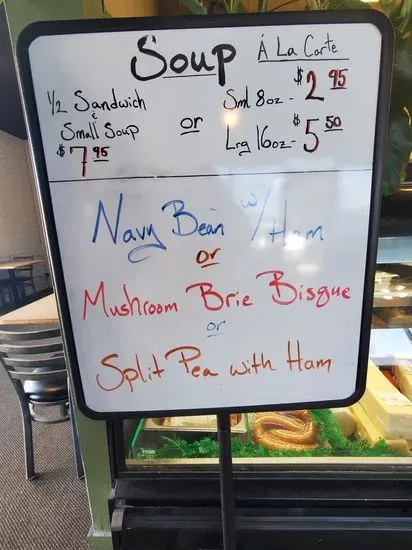 Soup
À La Carte
1/2 Sandwich
&
Small Soup
$7.95
or
Sml 8oz - $2.95
Lrg 16oz - $5.50
Navy Bean w/ Ham
or
Mushroom Brie Bisque
or
Split Pea with Ham